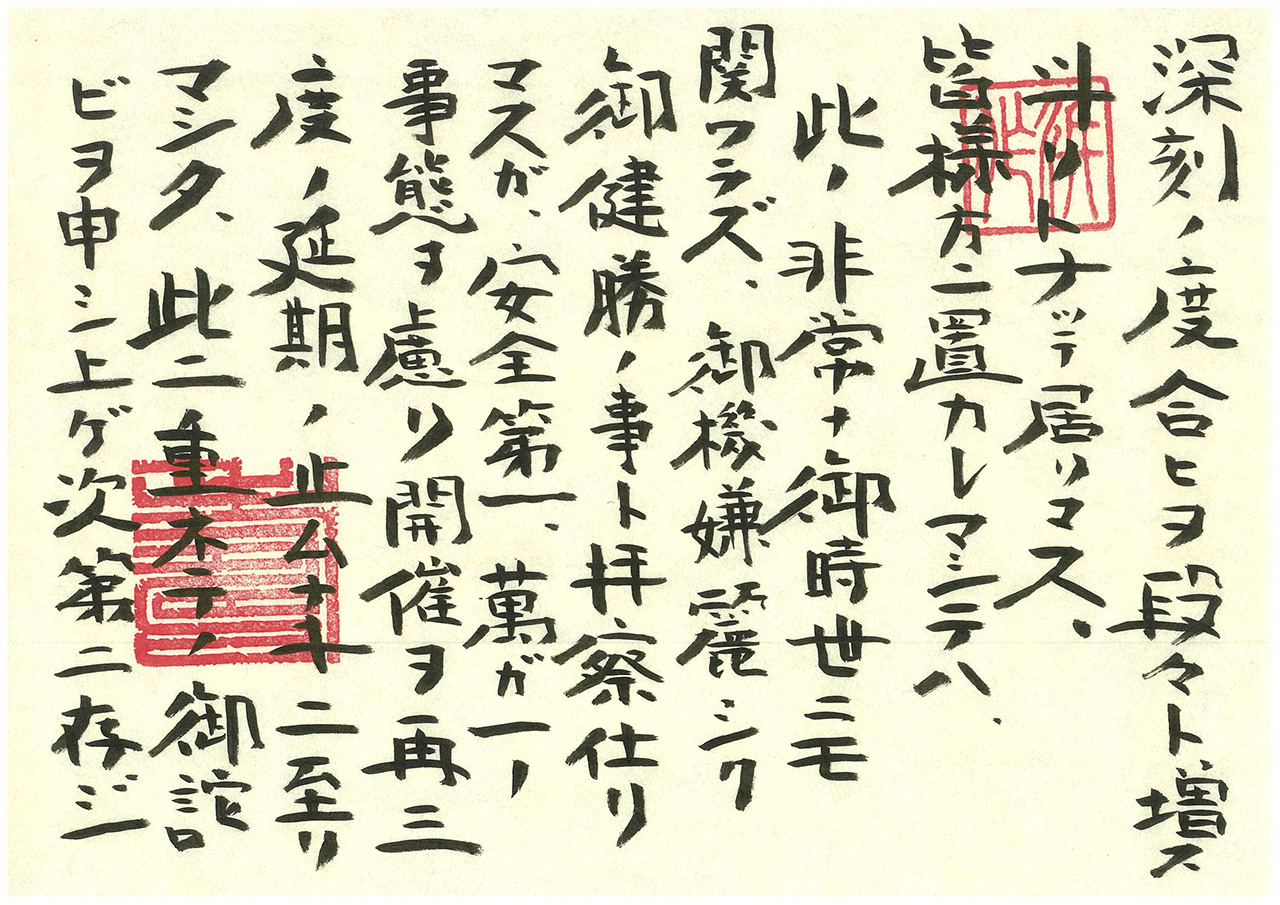 深刻ノ度合ヒヲ段々ト増ス
斗リトナッテ居リマス、
皆様方ニ置カレマシテハ、
此ノ非常ナ御時世ニモ
関ワラズ、御機嫌麗シク
御健勝ノ事ト拝察仕リ
マスガ、安全第一、萬ガ一ノ
事態ヲ慮リ開催ヲ再三
度ノ延期ノ止ムナキニ至リ
マシタ、此ニ重ネテノ御詫
ビヲ申シ上ゲ次第ニ存ジ